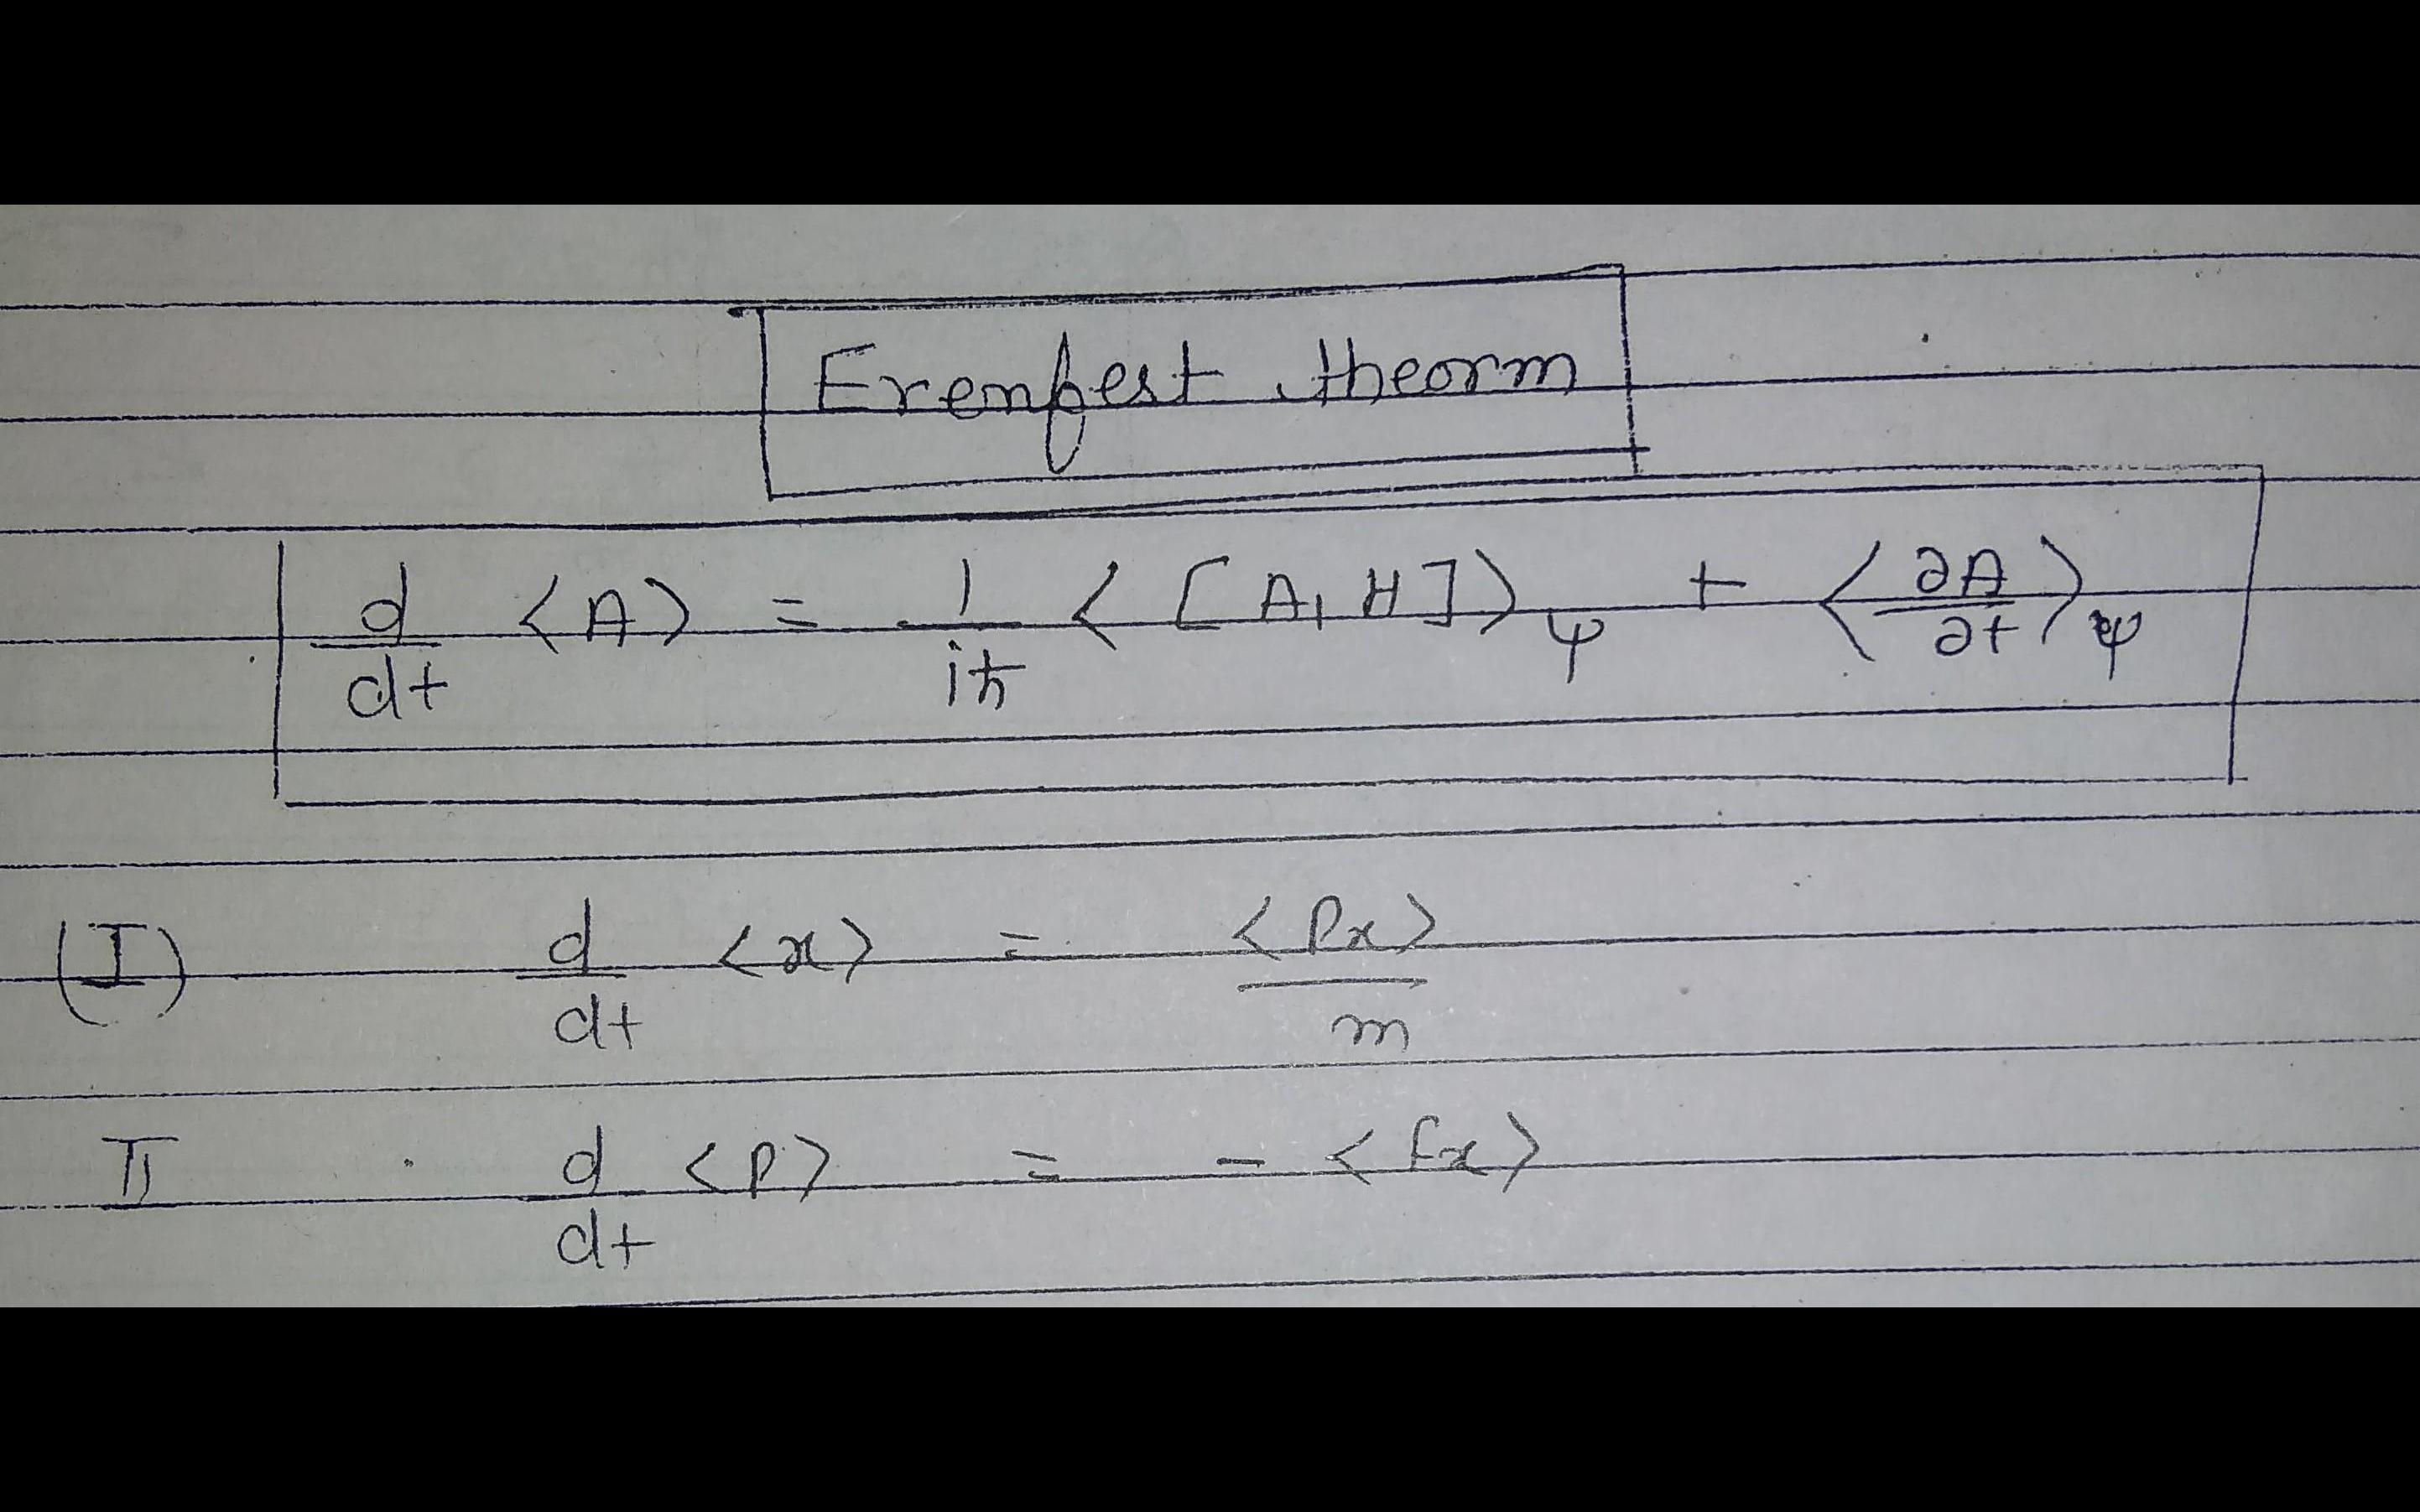 Erenfest theorm
d/dt <A> = 1/iħ <[A, H]>ψ + <∂A/∂t>ψ
(I) d/dt <x> = <Px>/m
II d/dt <P> = - <Fx>